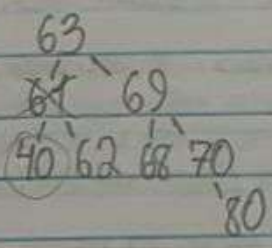 63
61 69
40 62 68 70
80